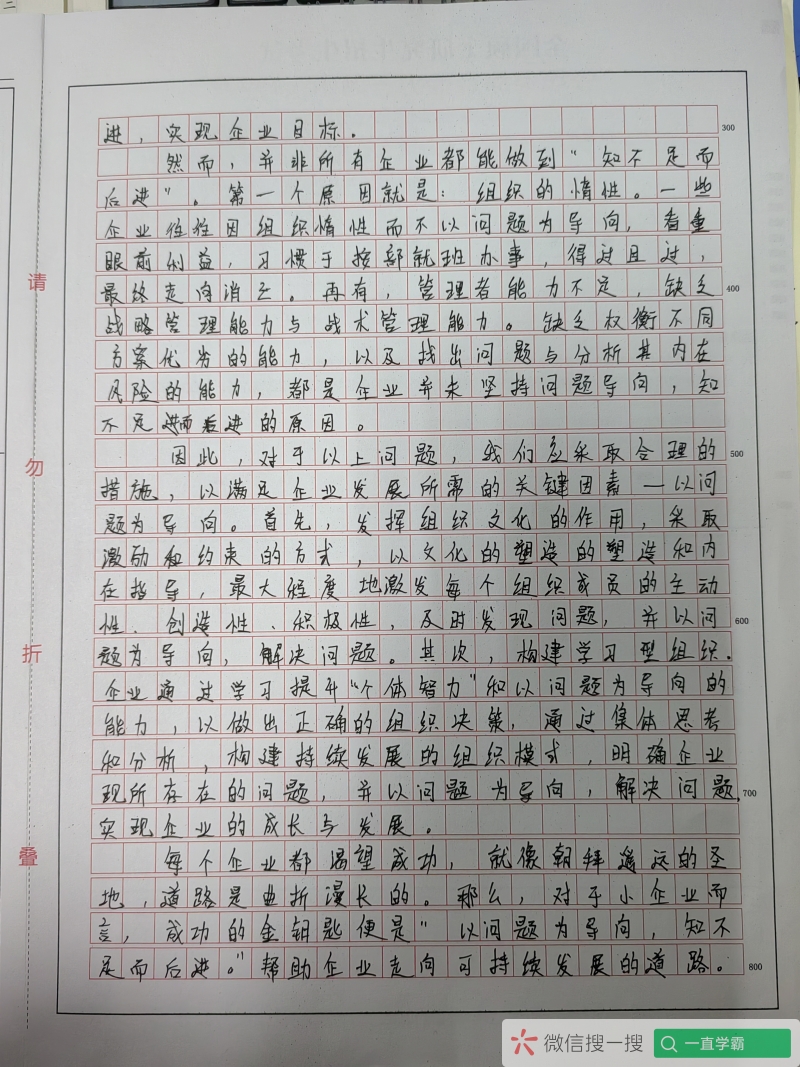 进，实现企业目标。
300
然而，并非所有企业都能做到“知不足而
后进”。第一个原因就是：组织的惰性。一些
企业往往因组织惰性而不以问题为导向，看重
眼前利益，习惯于按部就班办事，得过且过，
最终走向消亡。再有，管理者能力不足，缺乏
400
战略管理能力与战术管理能力。缺乏权衡不同
方案优劣的能力，以及找出问题与分析其内在
风险的能力，都是企业并未坚持问题导向，知
不足而后进的原因。
因此，对于以上问题，我们应采取合理的
500
措施，以满足企业发展所需的关键因素—以问
题为导向。首先，发挥组织文化的作用，采取
激励和约束的方式，以文化的塑造的塑造和内
在指导，最大程度地激发每个组织成员的主动
性、创造性、积极性，及时发现问题，并以问
600
题为导向，解决问题。其次，构建学习型组织.
企业通过学习提升“个体智力”和以问题为导向的
能力，以做出正确的组织决策，通过集体思考
和分析，构建持续发展的组织模式，明确企业
现所存在的问题，并以问题为导向，解决问题,
700
实现企业的成长与发展。
每个企业都渴望成功，就像朝拜遥远的圣
地，道路是曲折漫长的。那么，对于小企业而
言，成功的金钥匙便是“以问题为导向，知不
足而后进。”帮助企业走向可持续发展的道路。
800
请勿折叠
微信搜一搜
一直学霸